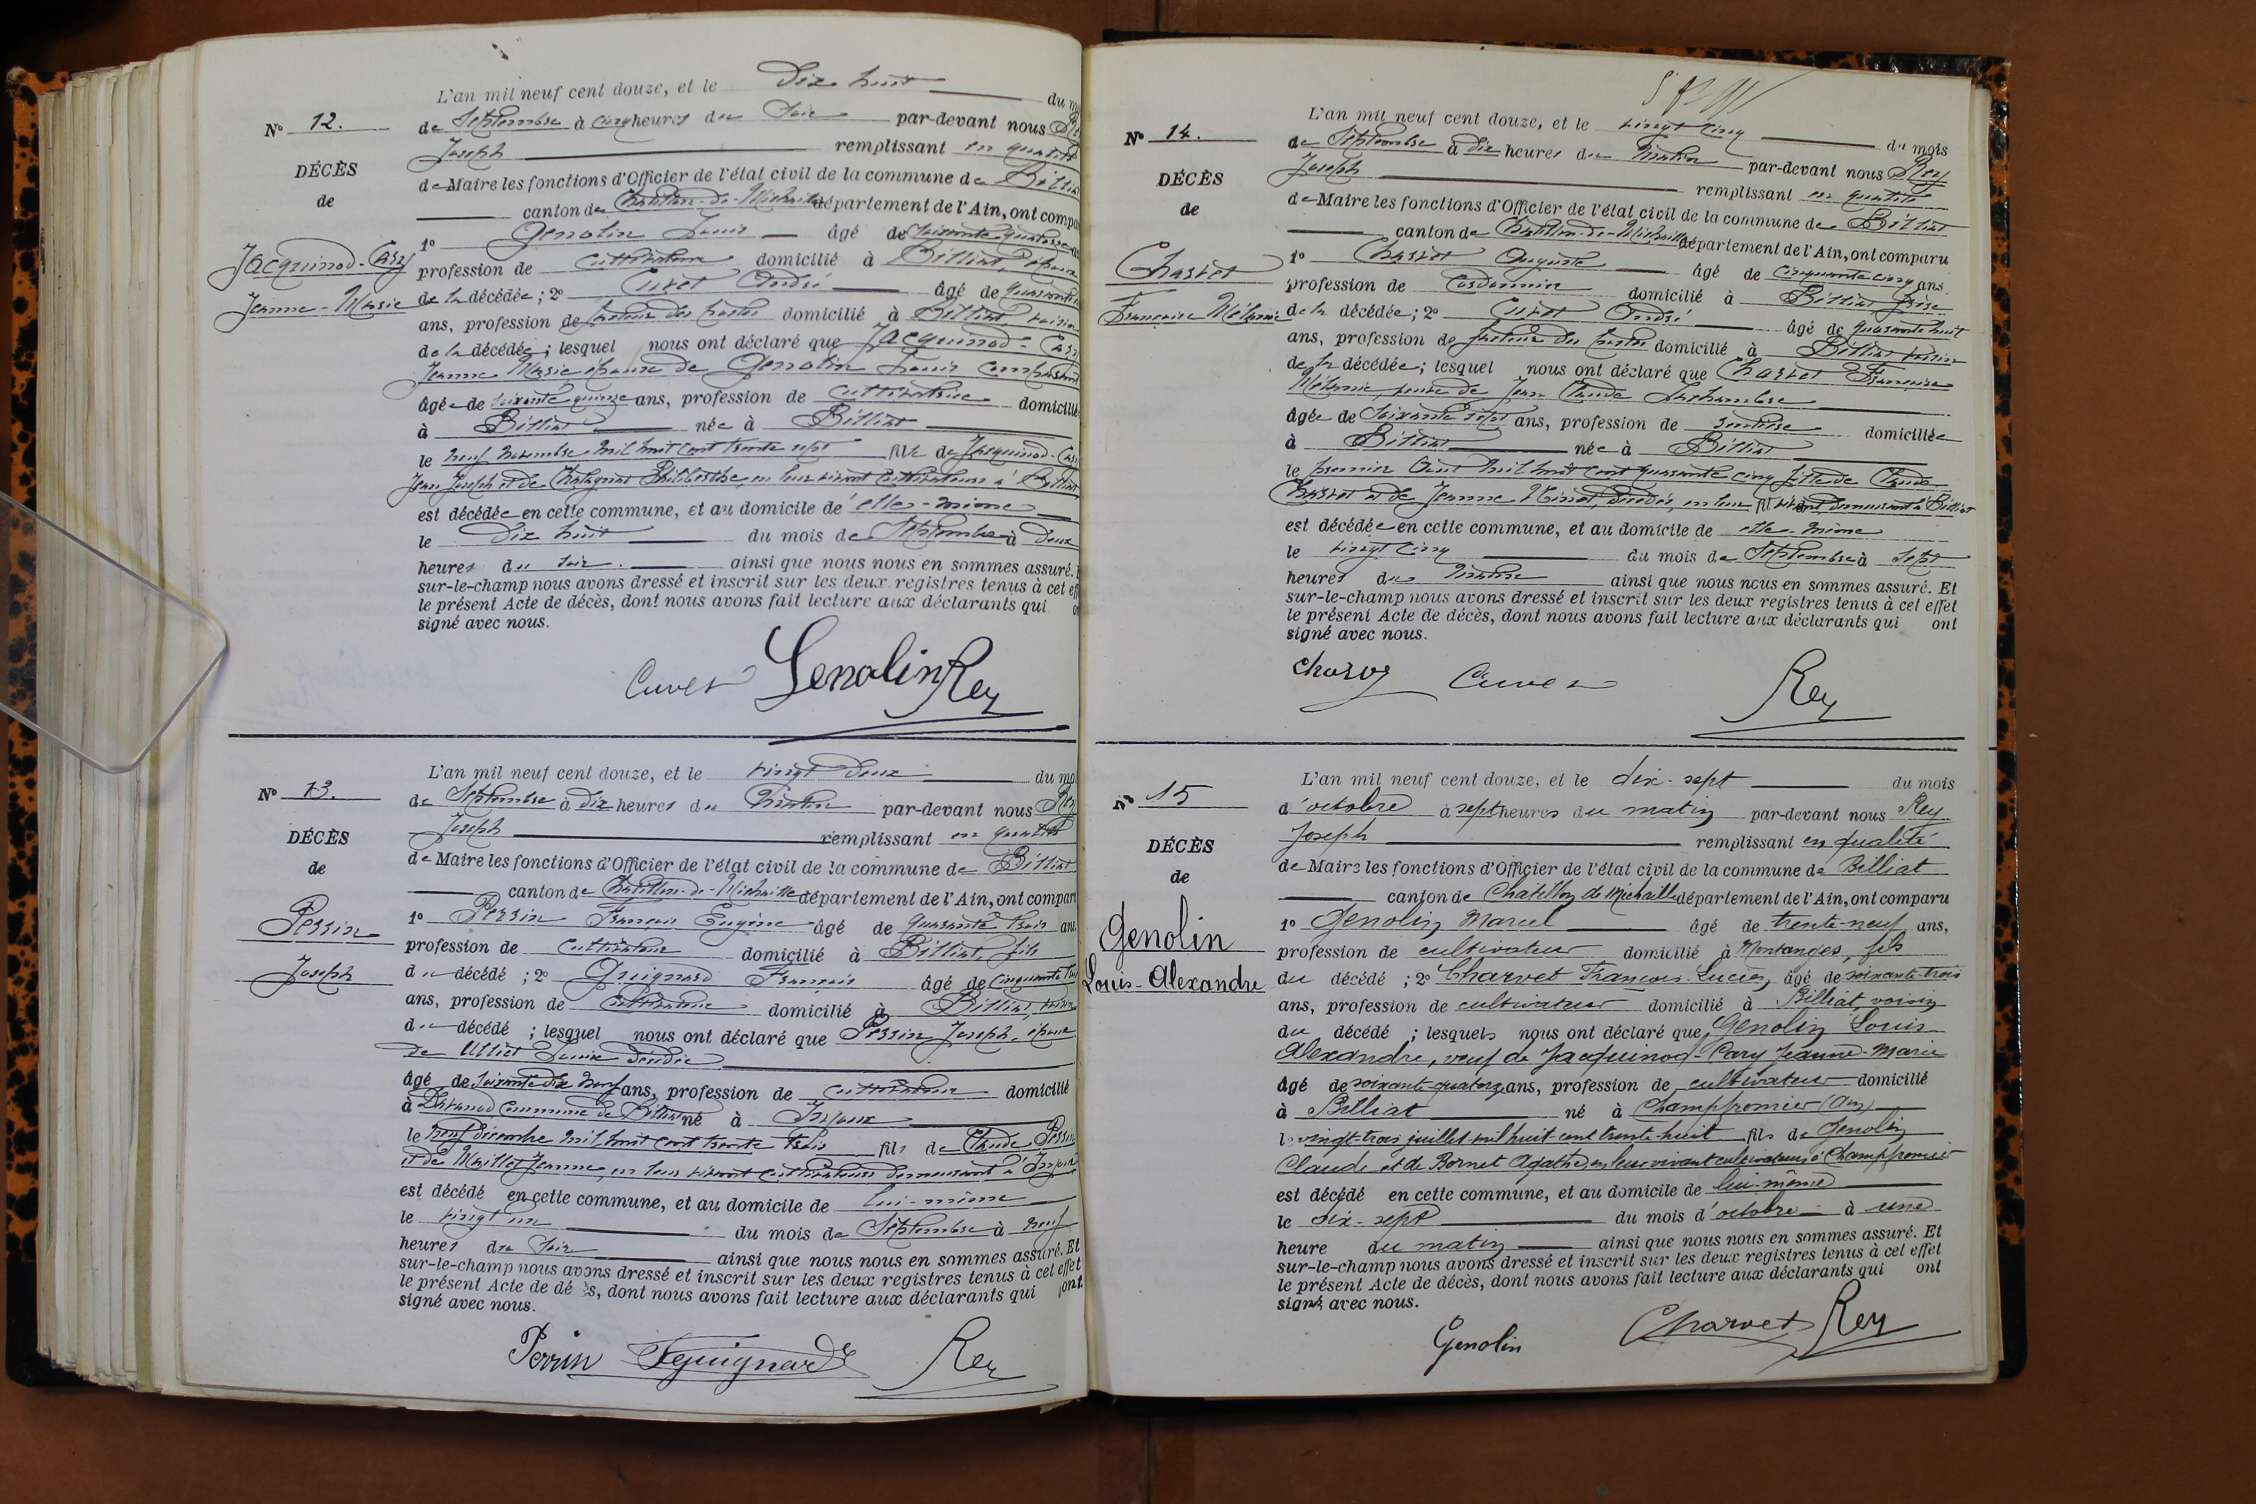 L'an mil neuf cent douze, et le dix huit du
N° 12. de Septembre à cinq heures du Soir par-devant nous Rey
Joseph remplissant en qualité
DÉCÈS
de
de Maire les fonctions d'Officier de l'état civil de la commune de Billiat
canton de Châtillon-de-Michaille département de l'Ain, ont compa
Jacquinod-Cary
Jeanne-Marie
1° Genolin Louis âgé de soixante quatorze
profession de cultivateur domicilié à Billiat, époux
de la décédée; 2° Cuvet André âgé de quarante
ans, profession de facteur des postes domicilié à Billiat, voisin
de la décédée; lesquel nous ont déclaré que Jacquinod-Cary
Jeanne Marie épouse de Genolin Louis
âgée de soixante quinze ans, profession de cultivatrice domicilié
à Billiat née à Billiat
le neuf novembre mil huit cent trente sept fille de Jacquinod-Cary
Jean Joseph et de Philiberthe, en leur vivant cultivateurs à Billiat
est décédée en cette commune, et au domicile de elle-même
le dix huit du mois de Septembre à deux
heures du soir. ainsi que nous nous en sommes assuré.
sur-le-champ nous avons dressé et inscrit sur les deux registres tenus à cet eff
le présent Acte de décès, dont nous avons fait lecture aux déclarants qui
signé avec nous.
Cuvet Genolin Rey
L'an mil neuf cent douze, et le vingt deux du mo
N° 13. de Septembre à dix heures du Matin par-devant nous Rey
Joseph remplissant en qualité
DÉCÈS
de
de Maire les fonctions d'Officier de l'état civil de la commune de Billiat
canton de Châtillon-de-Michaille département de l'Ain, ont compar
Perrin
Joseph
1° Perrin François Eugène âgé de quarante trois ans
profession de cultivateur domicilié à Billiat, fils
du décédé; 2° Guignard François âgé de cinquante
ans, profession de cultivateur domicilié à Billiat, voisin
du décédé; lesquel nous ont déclaré que Perrin Joseph, époux
de Louise
âgé de soixante dix neuf ans, profession de cultivateur domicilié
à commune de Billiat né à Injoux
le neuf décembre mil huit cent trente trois fils de Claude Perrin
et de Maillet Jeanne, en leur vivant cultivateurs demeurant à Injoux
est décédé en cette commune, et au domicile de lui-même
le vingt un du mois de Septembre à neuf
heures du soir ainsi que nous nous en sommes assuré. Et
sur-le-champ nous avons dressé et inscrit sur les deux registres tenus à cet effet
le présent Acte de dé ès, dont nous avons fait lecture aux déclarants qui ont
signé avec nous.
Perrin F Guignard Rey
L'an mil neuf cent douze, et le vingt cinq du mois
N° 14. de Septembre à dix heures du Matin par-devant nous Rey
Joseph remplissant en qualité
DÉCÈS
de
de Maire les fonctions d'Officier de l'état civil de la commune de Billiat
canton de Châtillon-de-Michaille département de l'Ain, ont comparu
Charvet
Françoise Mélanie
1° Charvet Auguste âgé de cinquante cinq ans
profession de Cordonnier domicilié à Billiat frère
de la décédée; 2° Cuvet André âgé de quarante huit
ans, profession de facteur des postes domicilié à Billiat voisin
de la décédée; lesquel nous ont déclaré que Charvet Françoise
Mélanie, veuve de Jean Claude
âgée de soixante sept ans, profession de rentière domiciliée
à Billiat née à Billiat
le premier Août mil huit cent quarante cinq fille de Claude
Charvet et de Jeanne en leur vivant demeurant à Billiat
est décédée en cette commune, et au domicile de elle-même
le vingt cinq du mois de Septembre à sept
heures du Matin ainsi que nous nous en sommes assuré. Et
sur-le-champ nous avons dressé et inscrit sur les deux registres tenus à cet effet
le présent Acte de décès, dont nous avons fait lecture aux déclarants qui ont
signé avec nous.
Cuvet Rey
L'an mil neuf cent douze, et le dix-sept du mois
N° 15 d'octobre à sept heures du matin par-devant nous Rey
Joseph remplissant en qualité
DÉCÈS
de
de Maire les fonctions d'Officier de l'état civil de la commune de Billiat
canton de Châtillon de Michaille département de l'Ain, ont comparu
Genolin
Louis-Alexandre
1° Genolin Marcel âgé de trente-neuf ans,
profession de cultivateur domicilié à Montanges, fils
du décédé; 2° Charvet François-Lucien âgé de soixante-trois
ans, profession de cultivateur domicilié à Billiat voisin
du décédé; lesquels nous ont déclaré que Genolin Louis
Alexandre, veuf de Jacquinod-Cary Jeanne-Marie
âgé de soixante-quatorze ans, profession de cultivateur domicilié
à Billiat né à Champfromier (Ain)
le vingt-trois juillet mil huit cent trente huit fils de Genolin
Claude et de Bornet Agathe, en leur vivant cultivateurs à Champfromier
est décédé en cette commune, et au domicile de lui-même
le dix-sept du mois d'octobre à une
heure du matin ainsi que nous nous en sommes assuré. Et
sur-le-champ nous avons dressé et inscrit sur les deux registres tenus à cet effet
le présent Acte de décès, dont nous avons fait lecture aux déclarants qui ont
signé avec nous.
Genolin Charvet Rey